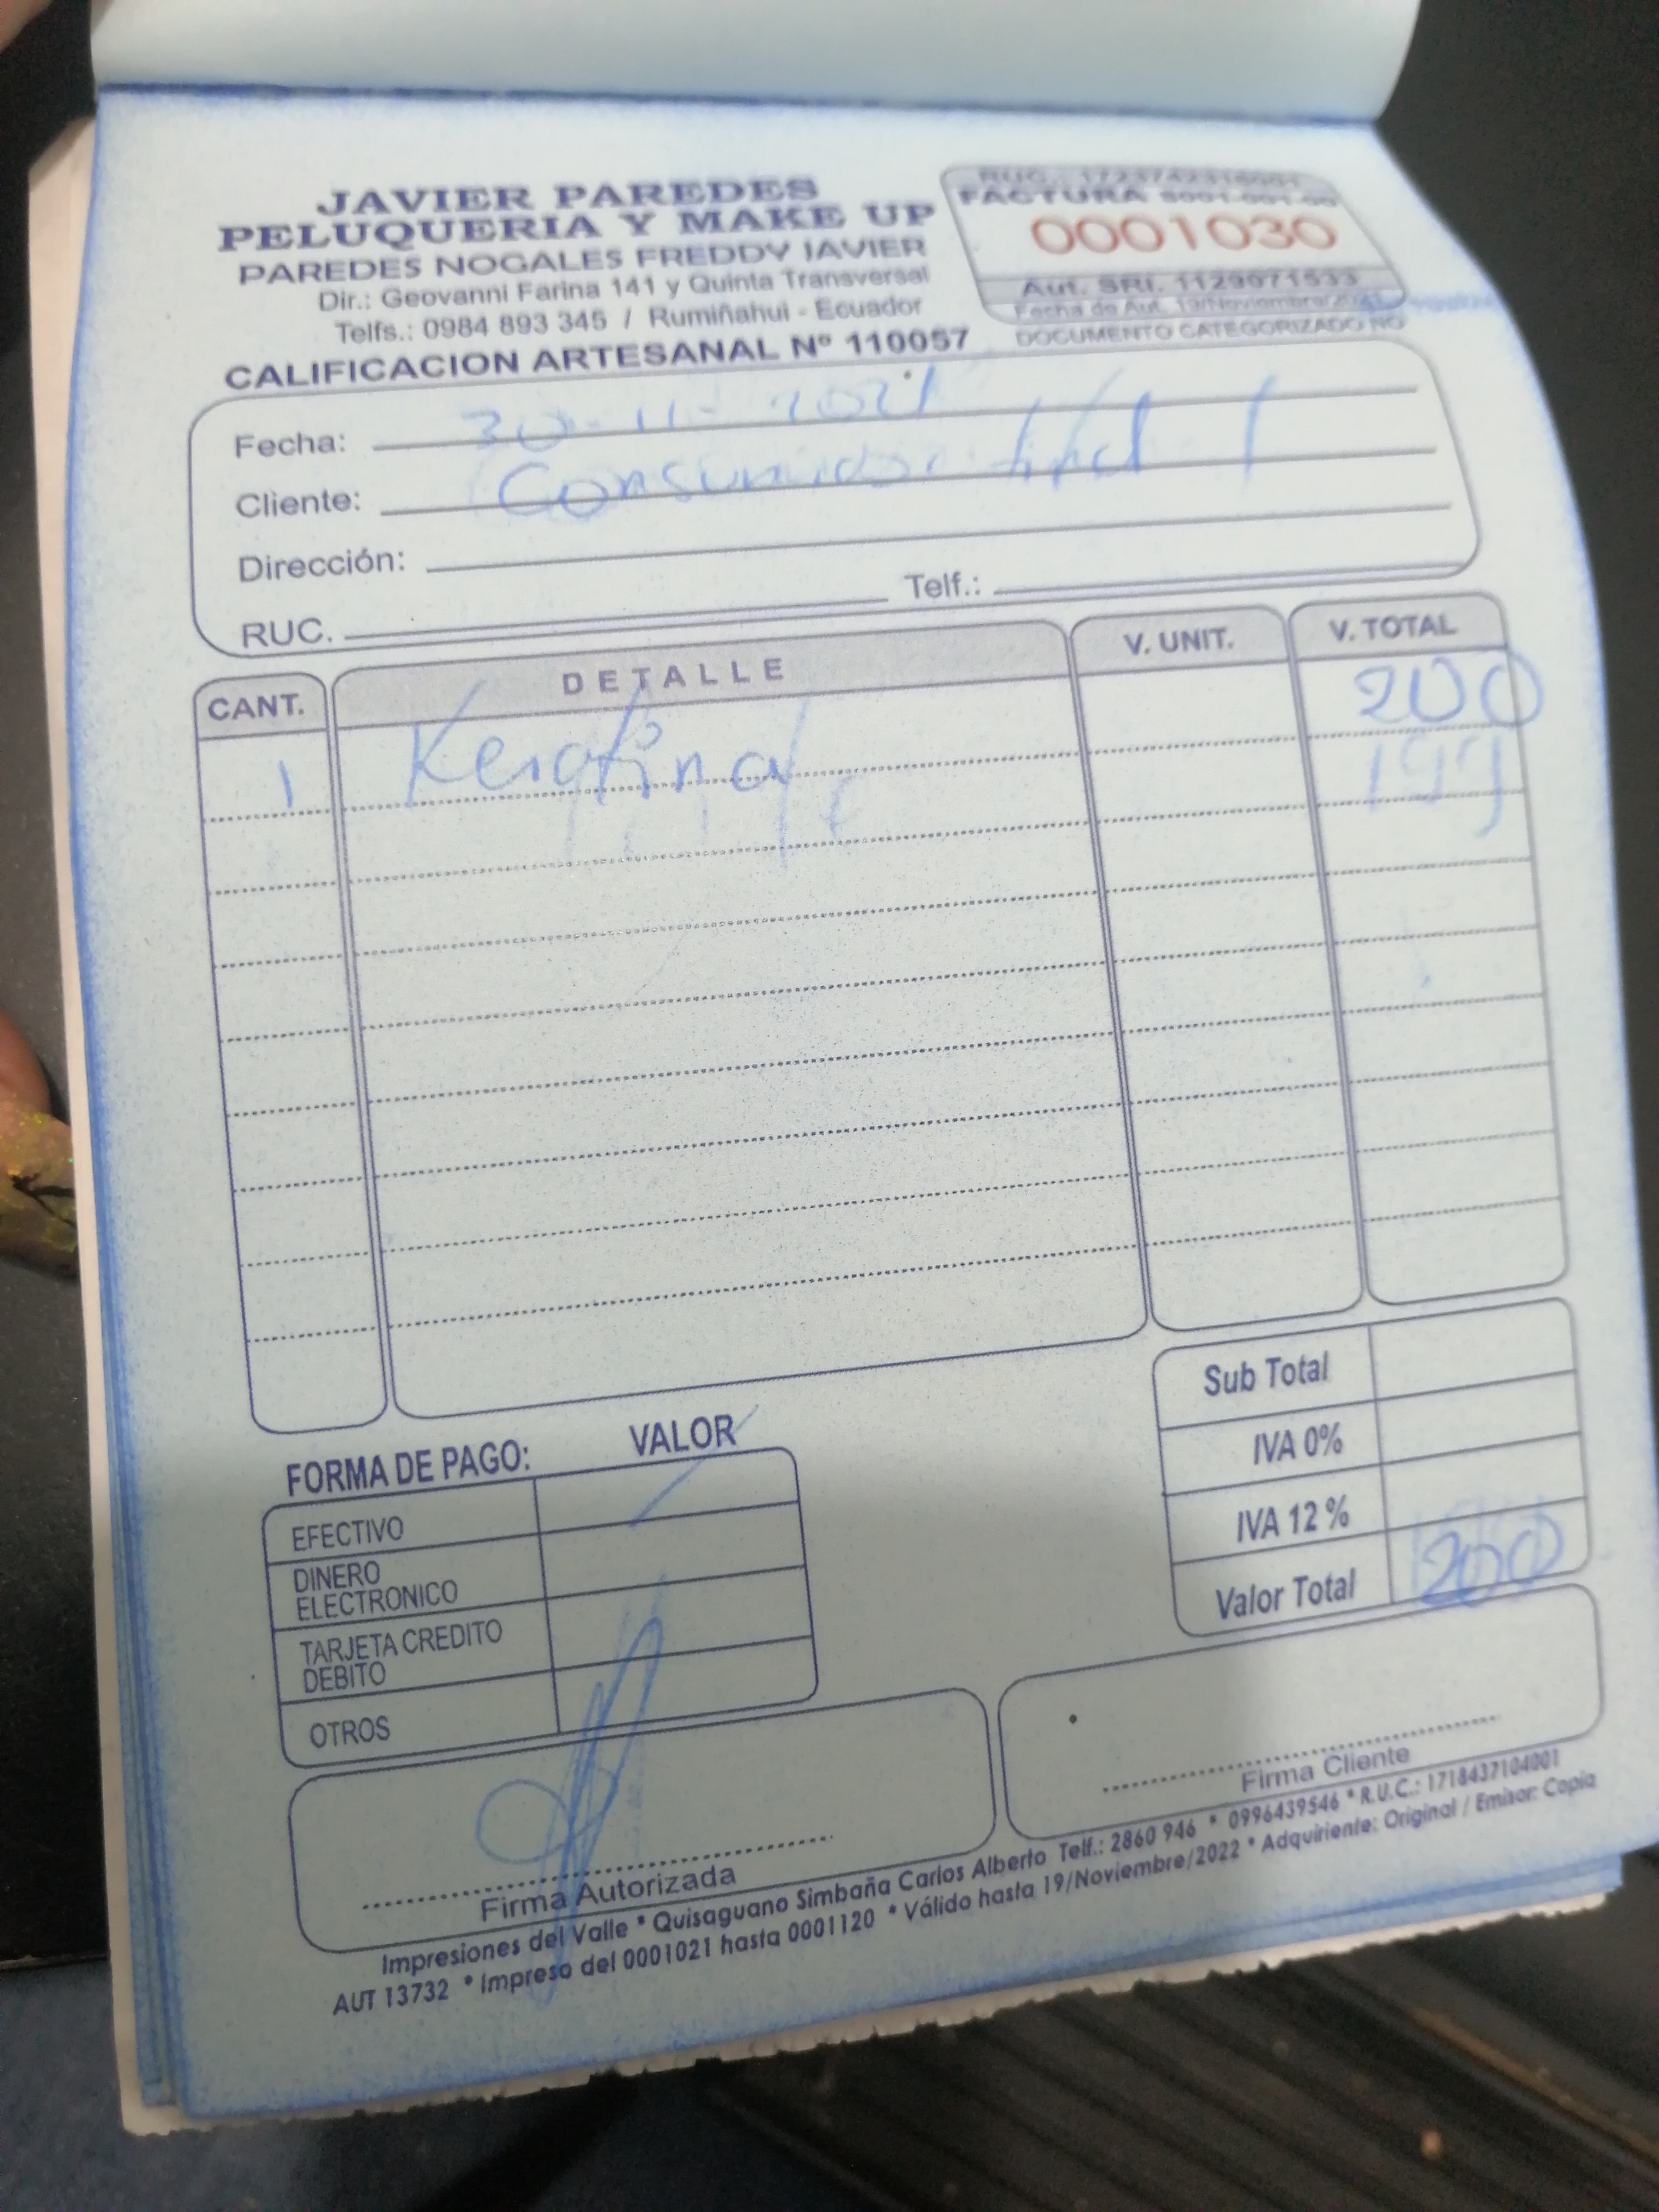 JAVIER PAREDES
PELUQUERIA Y MAKE UP
PAREDES NOGALES FREDDY JAVIER
Dir.: Geovanni Farina 141 y Quinta Transversal
Telfs.: 0984 893 345 / Rumiñahui - Ecuador
CALIFICACION ARTESANAL Nº 110057
RUC.:
FACTURA S001-001-00
0001030
Aut. SRI. 1129071533
Fecha de Aut. 19/Noviembre/2021
DOCUMENTO CATEGORIZADO NO
Fecha: 30-11-2021
Cliente: Consumidor final
Dirección:
RUC. Telf.:
CANT. DETALLE V. UNIT. V. TOTAL
1 Keratina 200
FORMA DE PAGO: VALOR
EFECTIVO
DINERO
ELECTRONICO
TARJETA CREDITO
DEBITO
OTROS
Sub Total
IVA 0%
IVA 12 %
Valor Total 200
Firma Autorizada
Firma Cliente
Impresiones del Valle * Quisaguano Simbaña Carlos Alberto Telf.: 2860 946 * 0996439546 * R.U.C.: 1718437104001
AUT 13732 * Impreso del 0001021 hasta 0001120 * Válido hasta 19/Noviembre/2022 * Adquiriente: Original / Emisor: Copia